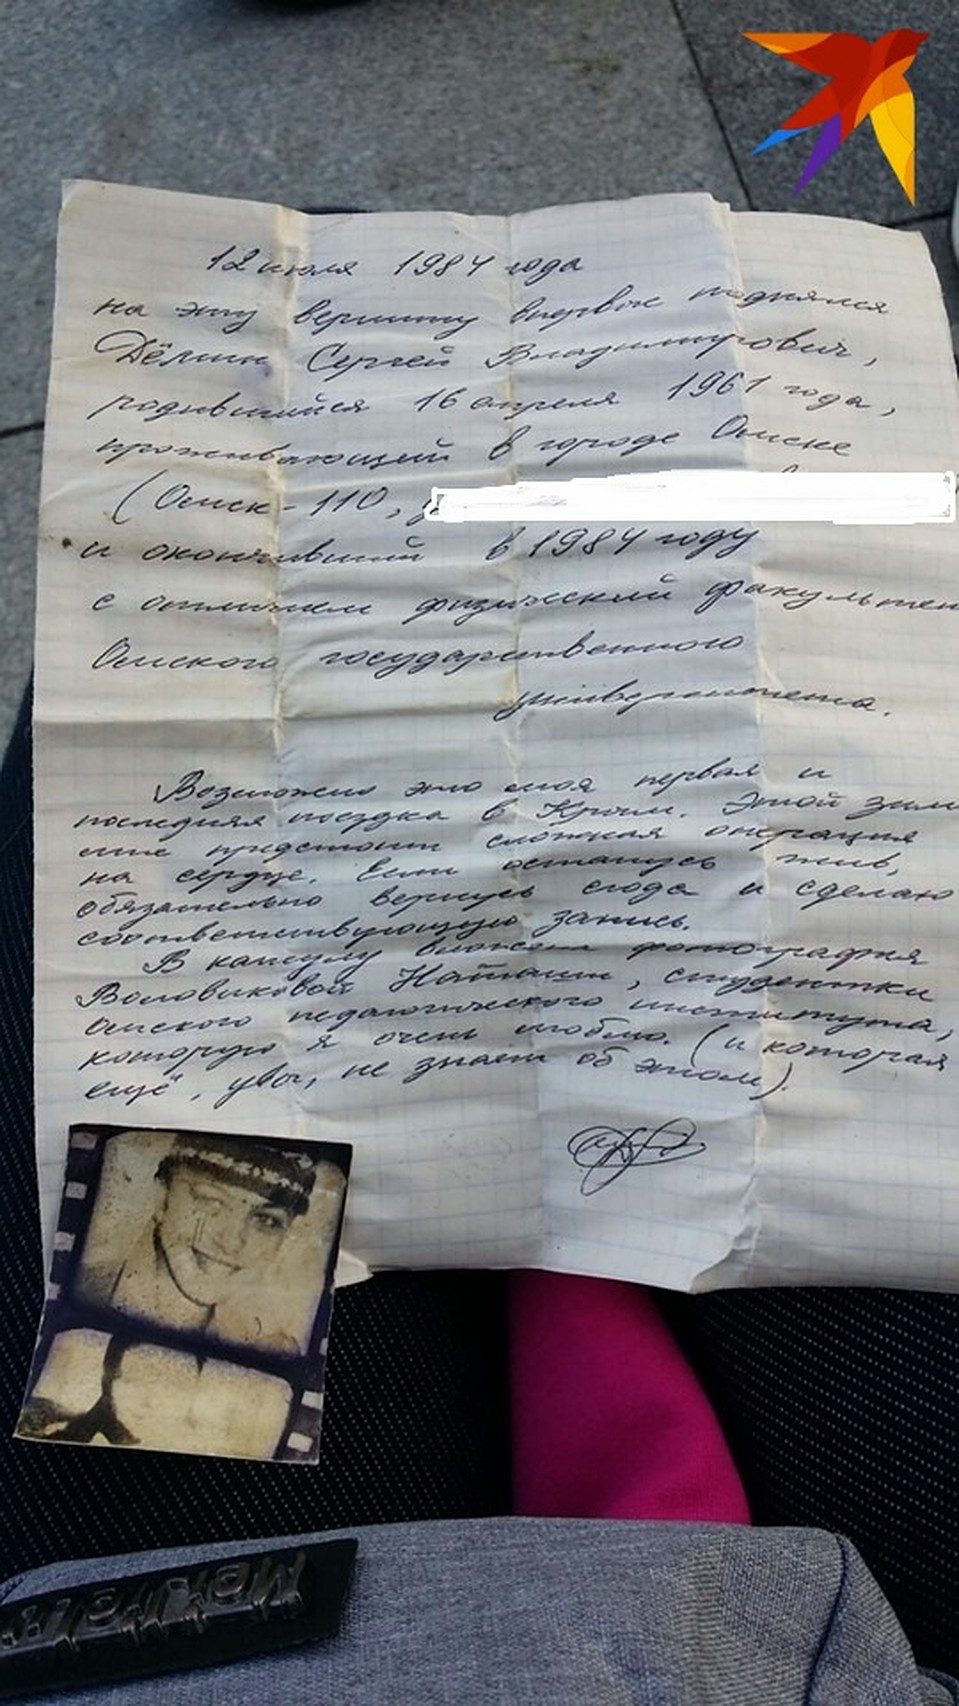 12 июля 1984 года
на эту вершину впервые поднялся
Дёмин Сергей Владимирович,
родившийся 16 апреля 1961 года,
проживающий в городе Омске
(Омск-110,
и окончивший в 1984 году
с отличием физический факультет
Омского государственного
университета.
Возможно это моя первая и
последняя поездка в Крым. Этой зимой
мне предстоит сложная операция
на сердце. Если останусь жив,
обязательно вернусь сюда и сделаю
соответствующую запись.
В капсулу вложена фотография
Воловиковой Наташи, студентки
Омского педагогического института,
которую я очень люблю. (и которая
ещё, увы, не знает об этом).